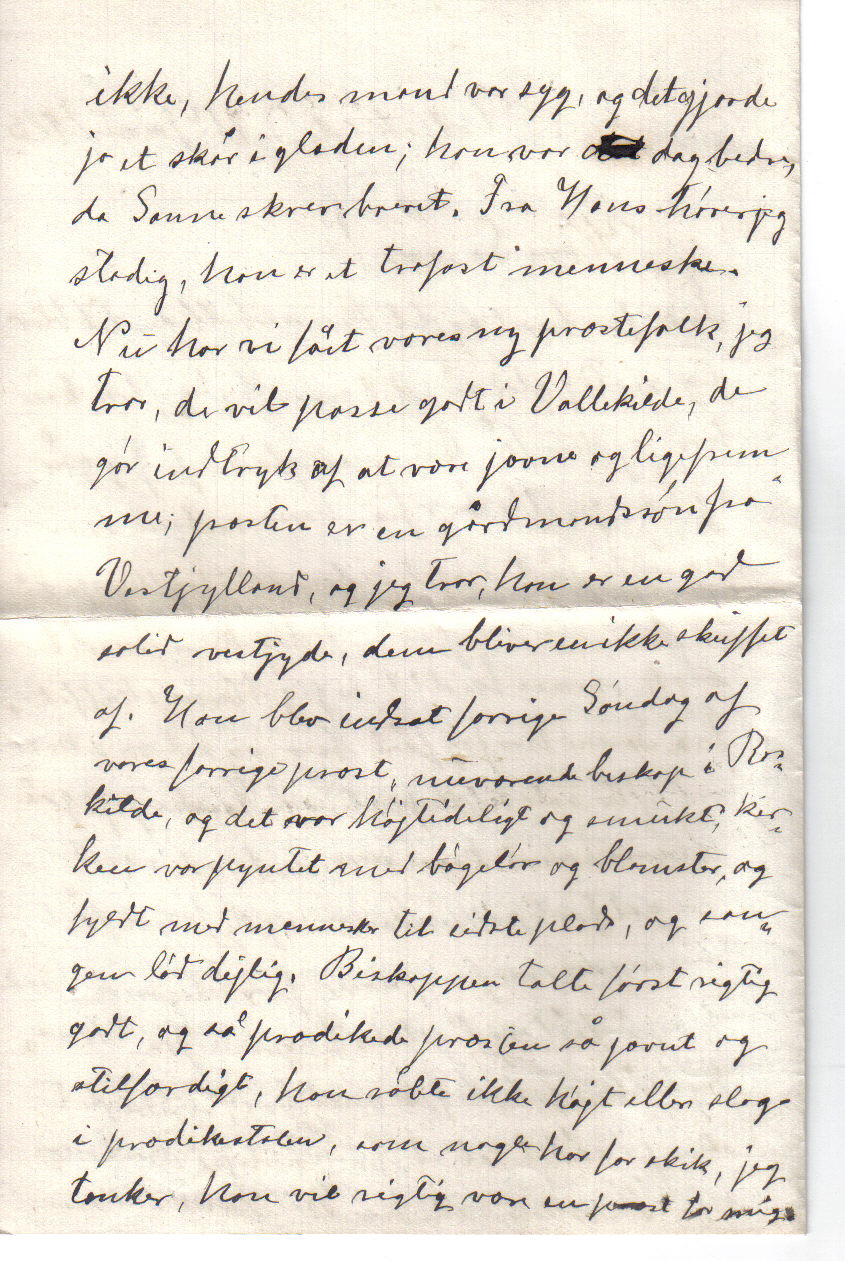 ikke, hendes mand var syg, og det gjorde
jo et skår i glæden; han var dag bedre,
da Sanne skrev brevet. Fra Hans hører jeg
stadig, han er et trofast menneske.
Nu har vi fået vores ny præstefolk, jeg
tror, de vil passe godt i Vallekilde, de
gör indtryk af at være jævne og ligefrem
me; præsten er en gårdmandssön fra
Vestjylland, og jeg tror, han er en god
solid vestjyde, dem bliver en ikke skuffet
af. Han blev indsat forrige Söndag af
vores forrige præst, nuværende biskop i Ros-
kilde, og det var höjtideligt og smukt, kir-
ken var pyntet med bögelöv og blomster, og
fyldt med mennesker til sidste plads, og san-
gen löd dejlig. Biskoppen talte först rigtig
godt, og så prædikede præsten så jævnt og
stilfærdigt, han råbte ikke höjt eller slog
i prædikestolen, som nogle har for skik, jeg
tænker, han vil rigtig være en præst for mig.